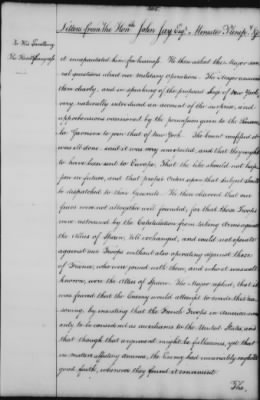 Letters from The Honble John Jay Esqr. Minister Plenipy. &c
To His Excellency
The Presidt of Congress
it incapacitated him for business. He then asked the Major seve-
ral questions about our military operations. The Major answered
them clearly, and in speaking of the proposed siege of New York,
very naturally introduced an account of the surprise, and
apprehensions occasioned by the permission given to the Pensaco-
la Garrison to join that of New York. The Count confessed it
was ill done, said it was very unexpected, and that they ought
to have been sent to Europe. That the like should not happen
for in future, and that proper Orders upon that subject should
be dispatched to their Generals. He then observed that our
fears were not altogether well founded, for that those Troops
were restrained by the Capitulation from taking Arms against
the Allies of Spain, till exchanged, and could not operate
against our Troops without also operating against those
of France, who were joined with them, and who it was well
known, were the Allies of Spain. The Major replied, that it
was feared that the Enemy would attempt to evade that rea-
soning, by insisting that the French Troops in America were
only to be considered as auxiliaries to the United States, and
that though that argument might be fallacious, yet that
in matters affecting America, the Enemy had invariably
good faith, wherever they found it convenient.
The